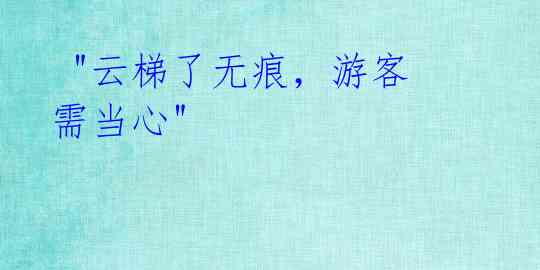 "云梯了无痕，游客
需当心"